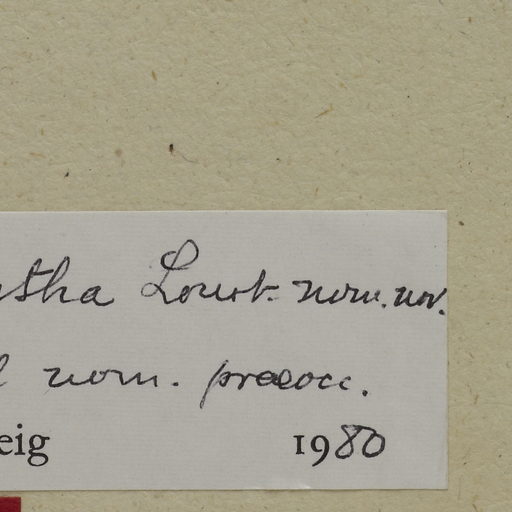 stha Lourt. nom. nov.
nom. praeocc.
eig 1980